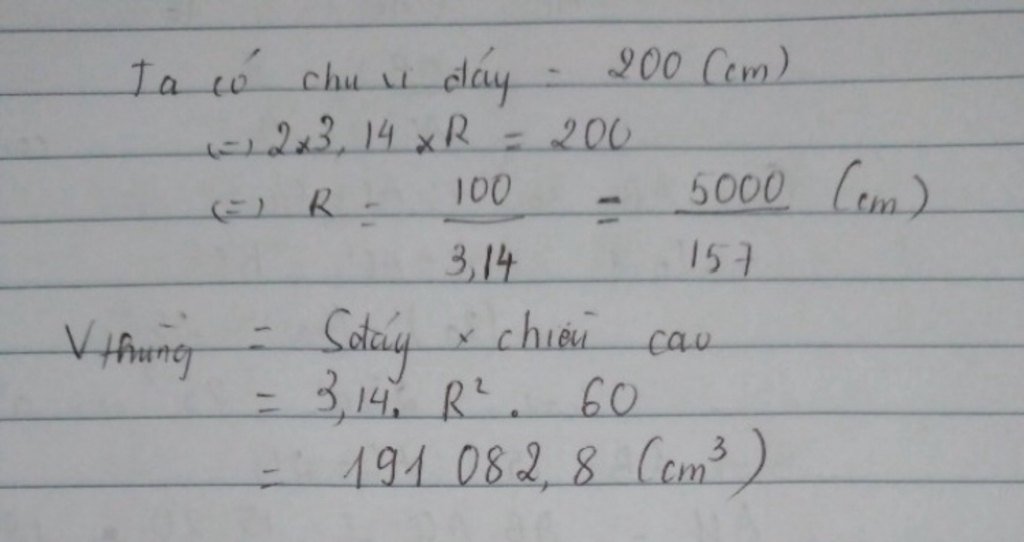 Ta có chu vi đáy = 200 (cm)
(=) 2x3,14 xR = 200
(=) R = 100 / 3,14 = 5000 / 157 (cm)
Vthùng = Sđáy x chiều cao
= 3,14. R². 60
= 191 082,8 (cm³)